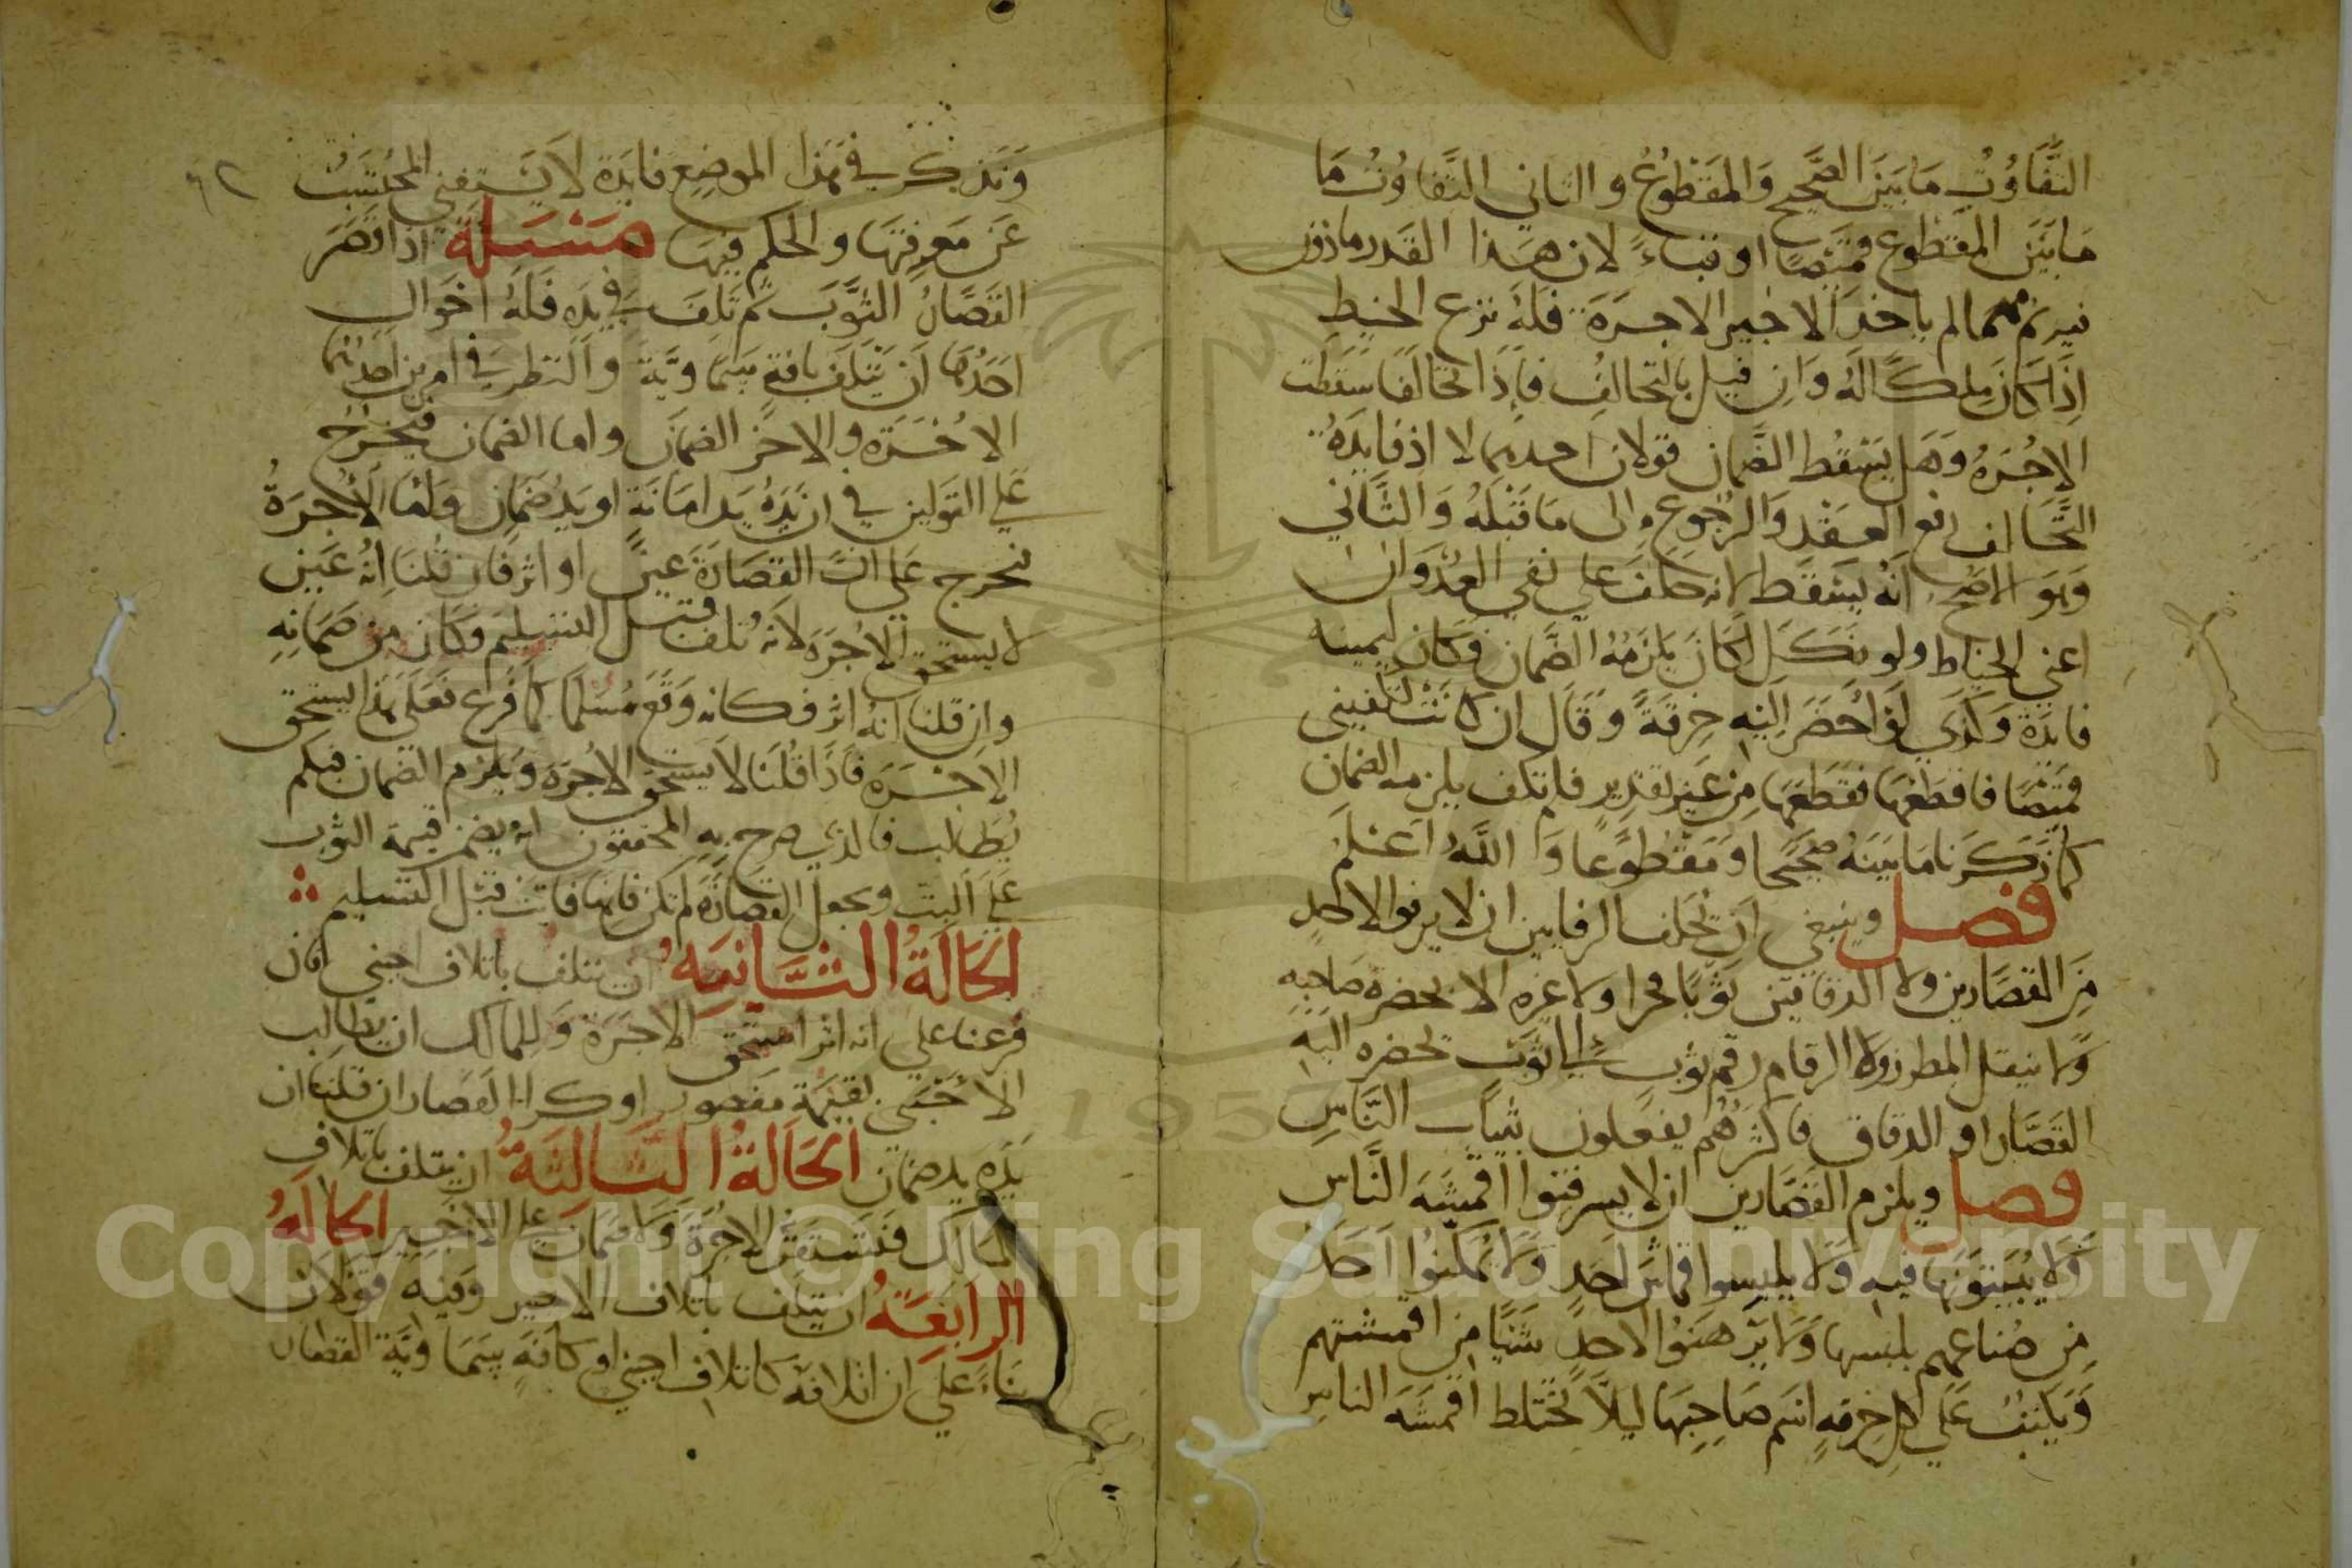 التَّفَاوُتُ مَا بَيْنَ الصَّحِيحِ وَالمَقْطُوعُ والثاني التَّفَاوُتُ مَا
مَا بَيْنَ المَقطوع قَمِيصًا او قباءً لان هَذا القَدر ماذون
فيه ثم مهما لم ياخذ الاجير الاجرَةَ فَلَهُ نزع الخيط
اِذَا كَانَ مِلكًا لَهُ وَاِن قيل بالتحالُفِ فَاِذَا تحَالفَا سَقَطت
الاجُرَةُ وَهَل يَسْقُط الضَّمان قولان احدهما لا اذ فَايدَةُ
التَّحَالف رفع العَقْد وَالرجُوع اِلى مَا قَبْلَهُ وَالثَّاني
وَهوَ الاصَح انَّهُ يَسْقُط لانه حَلفَ على نفي العُدْوَان
اعني الخياط ولو نَكَلَ لكَانَ يلزَمُهُ الضَّمان فكان ليمينه
فايدَة وَكَذي لَو اَحْضَرَ اِلَيْهِ خِرقَةً وَقَال ان كَانَتْ تكفيني
قمَيْصًا فاقطعْهَا فقَطَعَهَا مِن غَيْر تقدِيرٍ فلم تكف يلزمه الضمان
كما ذَكَرنا مَا بَيْنَهُ صَحِيحًا وَمَقْطُوعًا وَاللَّهُ اَعْلَمُ
فصل وينبغي اَن يُحَلف الرفايين ان لا يرفوا لاحَدٍ
مِنَ القصَّارين ولا الدقاقين ثوبًا مخرا ولا غيره الا بحَضرة صَاحِبِهِ
وَلا ينقل المطرز ولا الرقام رقم ثوب الى ثوَب تحضره اليهِ
القصَّار او الدقاق فاكثرهُم يفعلون بثيَاب النَّاسِ
فصل ويلزم القصَّارين ان لا يسرفنوا اقمِشَة النَّاس
وَلَا يُبَيتونَهَا فيه وَلَا يلبسوا قماشَ احَدٍ وَلَا يُمكِنُوا اَحَدً
مِن صُناعهم يلبسها وَلا يَرْهَنوُا لاحدٍ شَيْئًا مِن اقمشتهم
وَيَكتبُ عَلَى كل خِرقَةٍ اسْم صَاحِبهَا ليلَّا تَخْتلط اقمشَة الناس
٩٢
وَنَذكُر في هَذا الموضِع فايدَة لَا يَسْتغني المحُتسَبُ
عَن مَعرِفتهَا والحكم فيهَا مَسْئلة اذا قصَّرَ
القصَّارُ الثوَّبَ ثم تَلِفَ في يده فلَهُ احَوال
احَدُهَا اَن يَتْلَفَ بافةٍ سَمَاويَّة وَالنظر في امرين احدهما
الاُجْرَة والاخَر الضمان واما الضمان فيَخرج
عَلى القولين في ان يَدَهُ يَد امَانَةٍ او يَدُ ضمان وَامَّا الاُجْرَةُ
فيخرج عَلى انَّ القِصَارَةَ عَينٌ او اثر فان قُلنَا اِنَّهُ عَين
لا يستحق الاُجْرَة لانَّه تلف قبل التسليم وكَان مِن ضَمَانِهِ
وان قلنا انهُ اثر فكانه وَقَع مُسلمًا كما فرغ فعَلى هَذا يستحق
الاجْرَة فَاذَا قُلْنَا لَا يَستحَق الاجُرَة وَيَلزم الضمان فبكم
يُطَالب فالذي صرح به المحققون انهُ يضمن قيمة الثوب
عَلى البت ويجعل القصَارَة لم تكن فانها فاتت قبل التسليم
الحَالَةُ الثَّانيَةُ ان تتلف باتلاف اجنبي فان
فَرعنا على انه اثر استحق الاجرَة وَللمالك ان يطالِب
الاجْنبي بقيمَة مقصور او كذا القصار ان قلنا ان
يَدَه يد ضمان الحَالَةُ الثَّالِثَةُ ان يتلف باتلاف
المَالك فتَستقرُّ الاجُرَة وَلا ضمان على الاجَير الحالَةُ
الرابعَةُ ان يتلَف باتلاف الاجير وَفيه قَوْلَان
بنَاءً على ان اتلافه كاتلاف اجنبي او كافَةٍ سَمَاويَّة القصَار
Copyright © King Saud University
1957